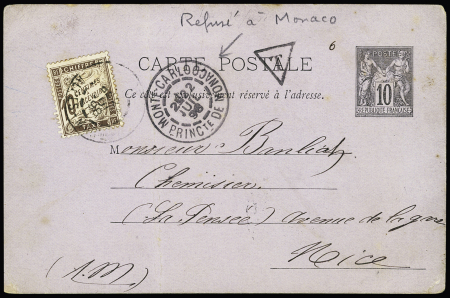 Refusé à Monaco
6
CARTE POSTALE
Ce côté est exclusivement réservé à l'adresse.
T
POSTE
10
CHIFFRE
MONTE-CARLO
PRINCTE DE MONACO
Monsieur
Chemisier
(La Pensée) avenue de la gare
Nice
(A.M)